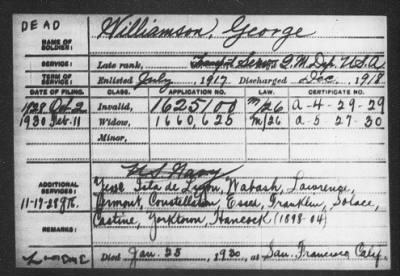 DEAD
Williamson, George
NAME OF SOLDIER:
SERVICE:
Late rank, Q.M. Dep. U.S.A
TERM OF SERVICE:
Enlisted July, 1917 Discharged Dec., 1918
DATE OF FILING. CLASS. APPLICATION NO. LAW. CERTIFICATE NO.
1928 Oct. 2 Invalid, 1625100 m/26 A-4-29-29
1930 Feb. 11 Widow, 1660,625 m/26 a-5-27-30
Minor,
U S Navy
ADDITIONAL SERVICES:
Isla de Luzon, Wabash, Lawrence,
Vermont, Constellation, Essex, Franklin, Solace,
Castine, Yorktown, Hancock (1898-04)
11-17-28
REMARKS:
Died Jan. 25, 1930, at San Francisco Calif.